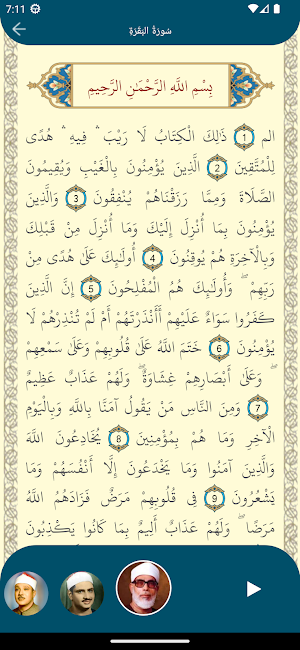 7:11
سُورَةُ البَقَرَةِ
بِسْمِ اللَّهِ الرَّحْمَٰنِ الرَّحِيمِ
الم 1 ذَلِكَ الْكِتَابُ لَا رَيْبَ ۛ فِيهِ ۛ هُدًى
لِلْمُتَّقِينَ 2 الَّذِينَ يُؤْمِنُونَ بِالْغَيْبِ وَيُقِيمُونَ
الصَّلَاةَ وَمِمَّا رَزَقْنَاهُمْ يُنْفِقُونَ 3 وَالَّذِينَ
يُؤْمِنُونَ بِمَا أُنْزِلَ إِلَيْكَ وَمَا أُنْزِلَ مِنْ قَبْلِكَ
وَبِالْآخِرَةِ هُمْ يُوقِنُونَ 4 أُولَئِكَ عَلَى هُدًى مِنْ
رَبِّهِمْ ۖ وَأُولَئِكَ هُمُ الْمُفْلِحُونَ 5 إِنَّ الَّذِينَ
كَفَرُوا سَوَاءٌ عَلَيْهِمْ أَأَنْذَرْتَهُمْ أَمْ لَمْ تُنْذِرْهُمْ لَا
يُؤْمِنُونَ 6 خَتَمَ اللَّهُ عَلَى قُلُوبِهِمْ وَعَلَى سَمْعِهِمْ
ۖ وَعَلَى أَبْصَارِهِمْ غِشَاوَةٌ ۖ وَلَهُمْ عَذَابٌ عَظِيمٌ
7 وَمِنَ النَّاسِ مَنْ يَقُولُ آمَنَّا بِاللَّهِ وَبِالْيَوْمِ
الْآخِرِ وَمَا هُمْ بِمُؤْمِنِينَ 8 يُخَادِعُونَ اللَّهَ
وَالَّذِينَ آمَنُوا وَمَا يَخْدَعُونَ إِلَّا أَنْفُسَهُمْ وَمَا
يَشْعُرُونَ 9 فِي قُلُوبِهِمْ مَرَضٌ فَزَادَهُمُ اللَّهُ
مَرَضًا ۖ وَلَهُمْ عَذَابٌ أَلِيمٌ بِمَا كَانُوا يَكْذِبُونَ